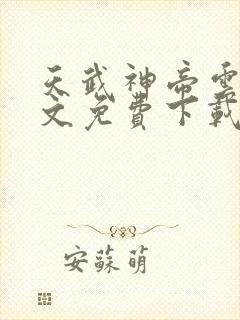 天武神帝雲
文免費下載
安蘇萌